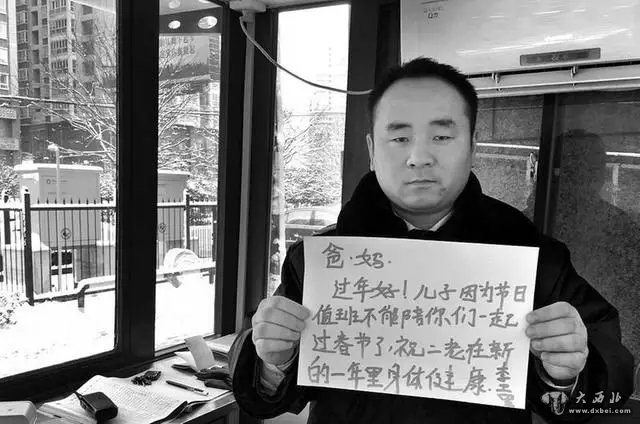 爸.妈.
过年好!儿子因为节日
值班不能陪你们一起
过春节了,祝二老在新
的一年里身体健康
大西北
www.dxbei.com